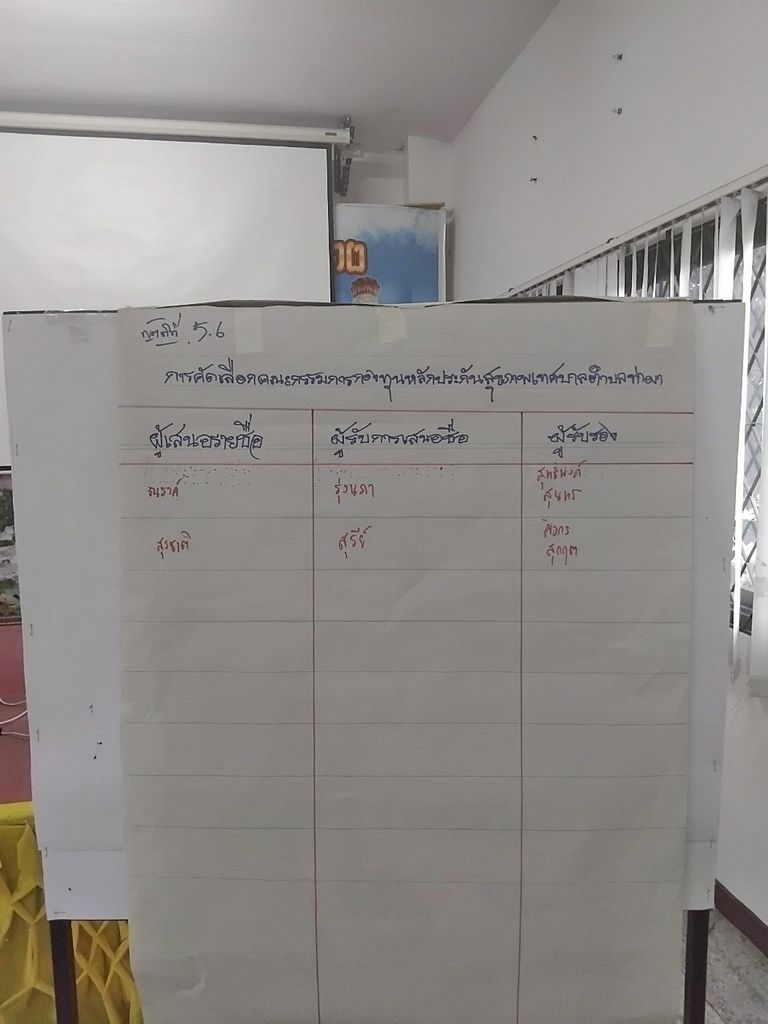 5.6
การคัดเลือกคณะกรรมการกองทุนหลักประกันสุขภาพเทศบาลตำบลท่าผา
ผู้เสนอรายชื่อ ผู้รับการเสนอชื่อ ผู้รับรอง
ณรงค์ รุ่งนภา สุทธิพงศ์
สุนทร
สุรชาติ สุรีย์